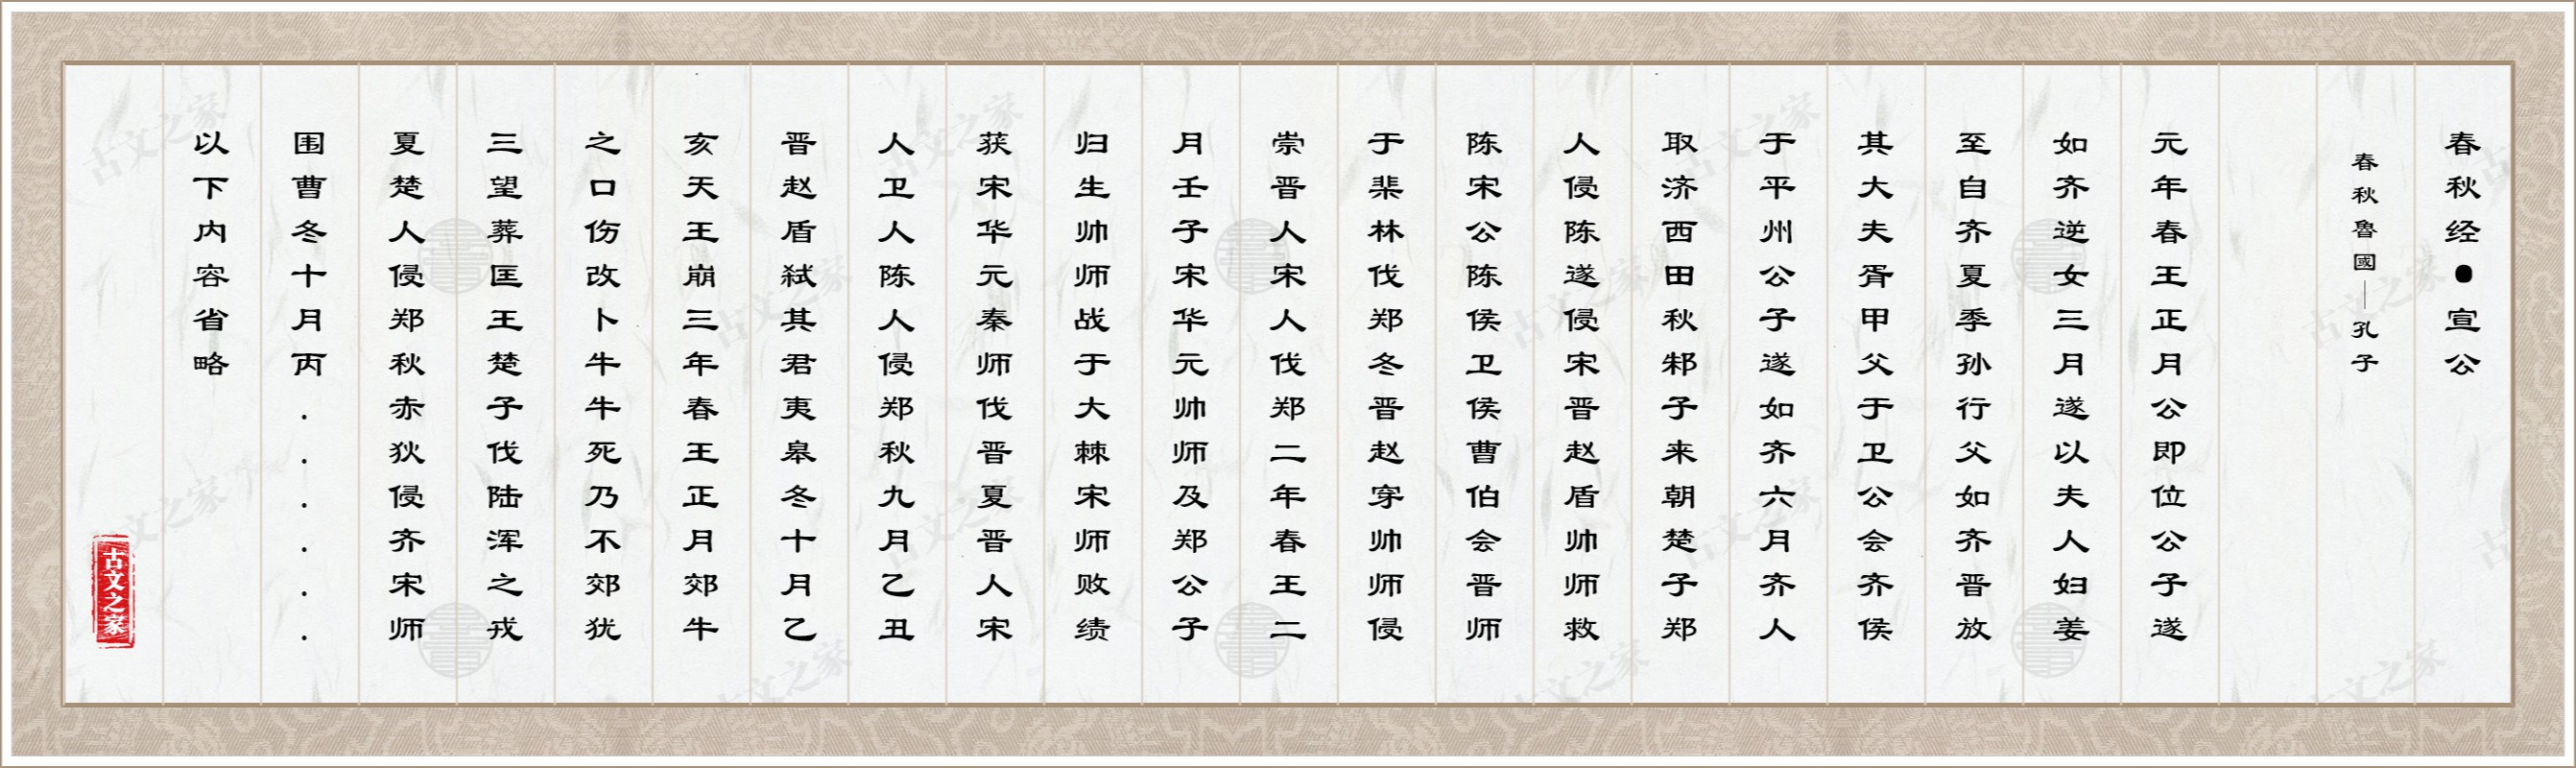 春秋经●宣公
春秋魯國—孔子
元年春王正月公即位公子遂
如齐逆女三月遂以夫人妇姜
至自齐夏季孙行父如齐晋放
其大夫胥甲父于卫公会齐侯
于平州公子遂如齐六月齐人
取济西田秋邾子来朝楚子郑
人侵陈遂侵宋晋赵盾帅师救
陈宋公陈侯卫侯曹伯会晋师
于棐林伐郑冬晋赵穿帅师侵
崇晋人宋人伐郑二年春王二
月壬子宋华元帅师及郑公子
归生帅师战于大棘宋师败绩
获宋华元秦师伐晋夏晋人宋
人卫人陈人侵郑秋九月乙丑
晋赵盾弑其君夷皋冬十月乙
亥天王崩三年春王正月郊牛
之口伤改卜牛牛死乃不郊犹
三望葬匡王楚子伐陆浑之戎
夏楚人侵郑秋赤狄侵齐宋师
围曹冬十月丙......
以下内容省略
古文之家